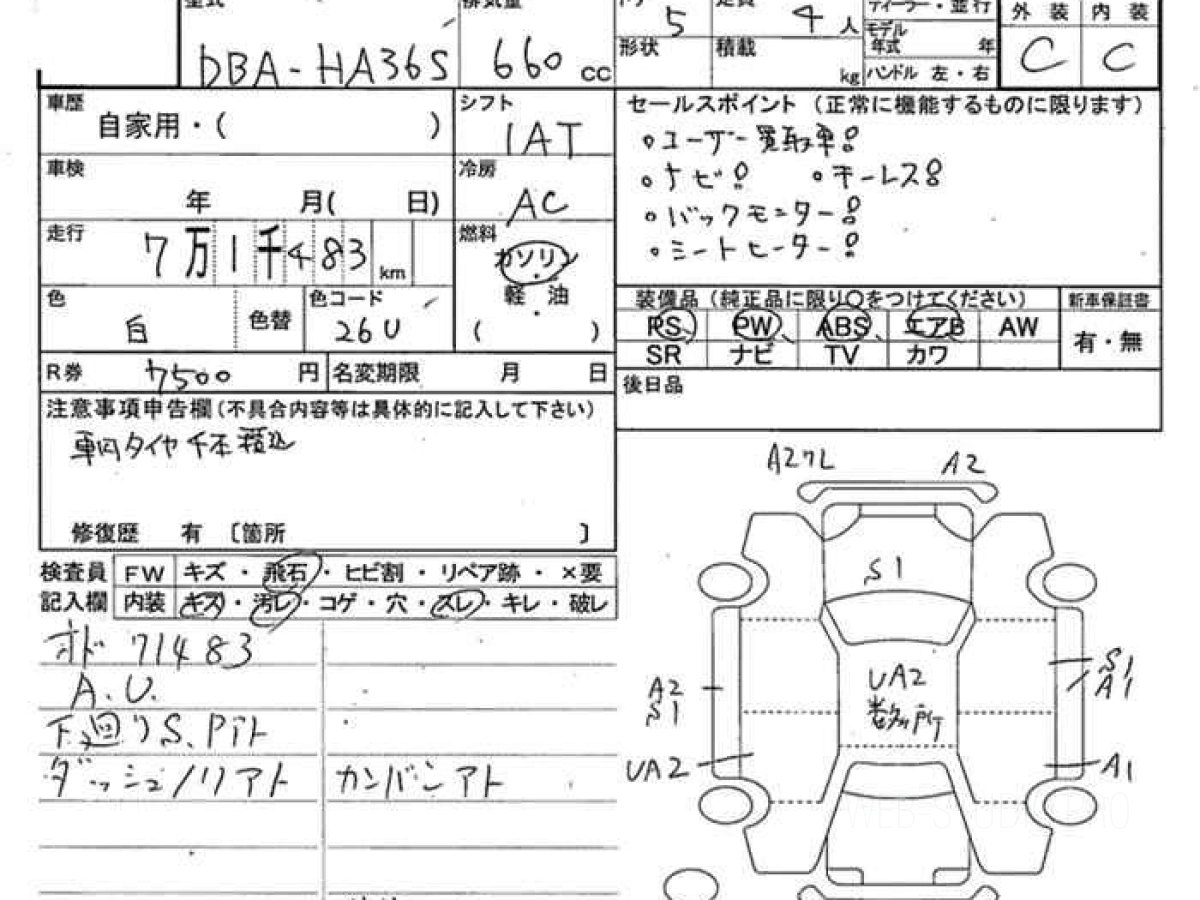 型式
DBA-HA36S
排気量
660 cc
ドア 5
定員 4 人
形状
積載 kg
ディーラー・並行
モデル年式 年
ハンドル 左・右
外装 内装
C C
車歴
自家用・( )
シフト
IAT
車検
年 月( 日)
冷房
AC
走行
7万1千483 km
燃料
ガソリン
・
軽油
・
( )
色
白
色替
色コード
26U
R券 7500 円
名変期限 月 日
セールスポイント (正常に機能するものに限ります)
○ユーザー買取車!
○ナビ! ○キーレス!
○バックモニター!
○シートヒーター!
装備品(純正品に限り○をつけてください)
新車保証書
PS PW ABS エアB AW
有・無
SR ナビ TV カワ
後日品
注意事項申告欄(不具合内容等は具体的に記入して下さい)
車内タイヤ 積込
修復歴 有 〔箇所 〕
検査員 FW キズ・飛石・ヒビ割・リペア跡・×要
記入欄 内装 キズ・汚レ・コゲ・穴・スレ・キレ・破レ
オド 71483
A.U.
下廻りS.
ダッシュノリアト カンバンアト
A2ワレ A2
S1
UA2
数ヶ所
A2
S1
UA2
S1
A1
A1